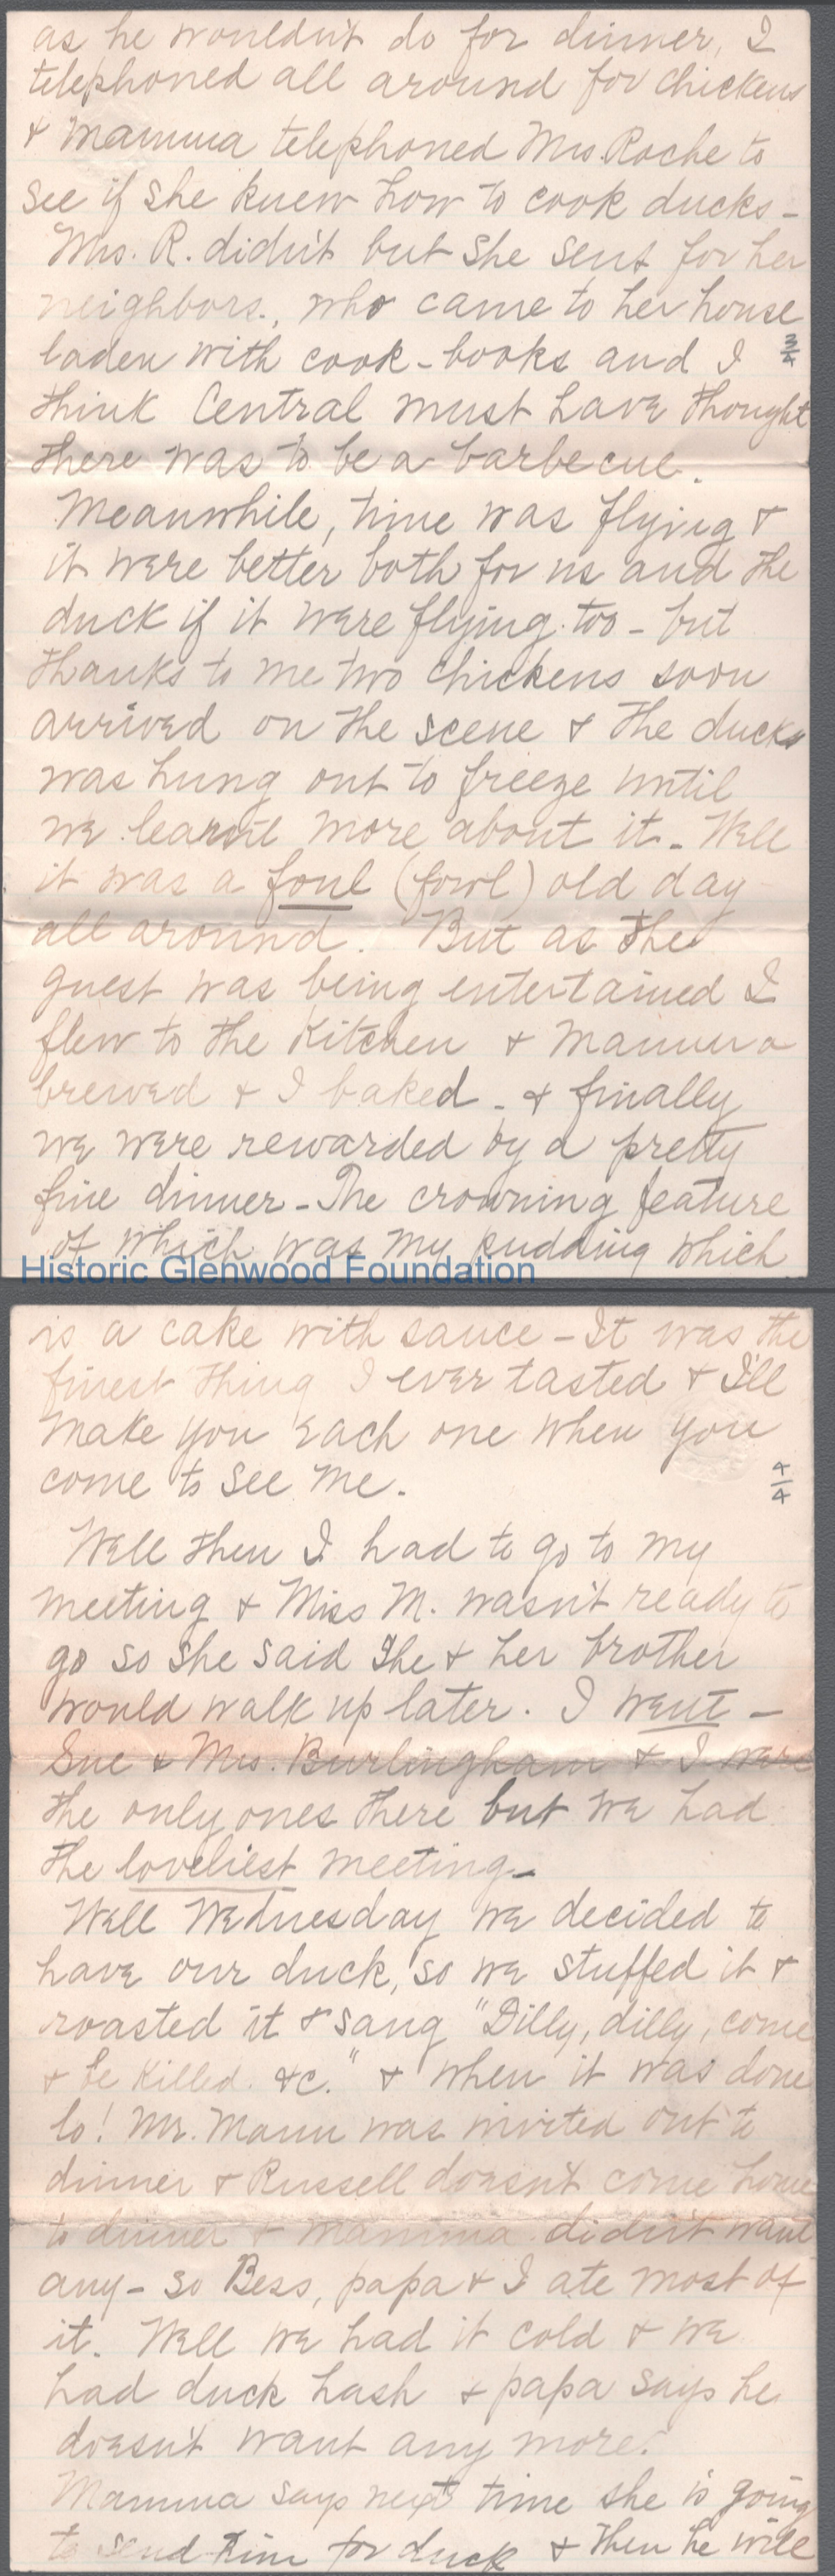 as he wouldn't do for dinner, I
telephoned all around for chickens
& Mamma telephoned Mrs. Roche to
see if she knew how to cook ducks -
Mrs. R. didn't but she sent for her
neighbors., who came to her house
laden with cook-books and I
3/4
think Central must have thought
there was to be a barbecue.
Meanwhile, time was flying &
it were better both for us and the
duck if it were flying too - but
thanks to me two chickens soon
arrived on the scene & the ducks
was hung out to freeze until
we learnt more about it - Well
it was a foul (fowl) old day
all around. But as the
guest was being entertained I
flew to the Kitchen & Mamma
brewed & I baked - & finally
we were rewarded by a pretty
fine dinner - The crowning feature
of which was my pudding which
Historic Glenwood Foundation
is a cake with sauce - It was the
finest thing I ever tasted & I'll
make you each one when you
come to see me.
4/4
Well then I had to go to my
meeting & Miss M. wasn't ready to
go so she said she & her brother
would walk up later. I went -
Sue & Mrs. Burlingham & I were
the only ones there but we had
the loveliest meeting -
Well Wednesday we decided to
have our duck, so we stuffed it &
roasted it & sang "Dilly, dilly, come
& be Killed. &c." & when it was done
lo! Mr. Mann was invited out to
dinner & Russell doesn't come home
to dinner & Mamma didn't want
any - so Bess, papa & I ate most of
it. Well we had it cold & we
had duck hash & papa says he
doesn't want any more.
Mamma says next time she is going
to send him for duck & then he will